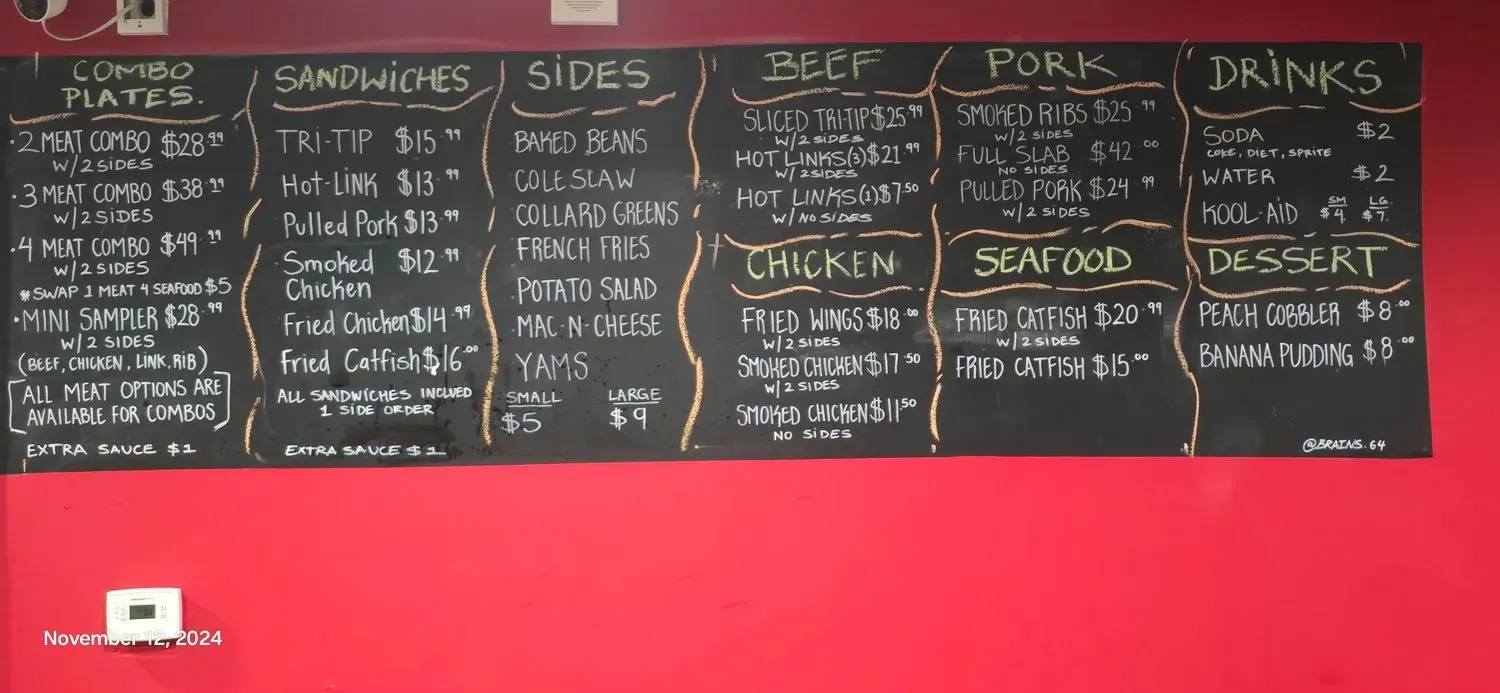 COMBO
PLATES.
·2 MEAT COMBO $28.99
W/2 SIDES
·3 MEAT COMBO $38.99
W/2 SIDES
·4 MEAT COMBO $49.99
W/2 SIDES
*SWAP 1 MEAT 4 SEAFOOD $5
·MINI SAMPLER $28.99
W/2 SIDES
(BEEF, CHICKEN, LINK, RIB)
[ALL MEAT OPTIONS ARE
AVAILABLE FOR COMBOS]
EXTRA SAUCE $1
SANDWICHES
TRI-TIP $15.99
HOT-LINK $13.99
Pulled Pork $13.99
Smoked $12.99
Chicken
Fried Chicken $14.99
Fried Catfish $16.00
ALL SANDWICHES INCLUED
1 SIDE ORDER
EXTRA SAUCE $1
SIDES
BAKED BEANS
COLE SLAW
COLLARD GREENS
FRENCH FRIES
POTATO SALAD
MAC-N-CHEESE
YAMS
SMALL LARGE
$5 $9
BEEF
SLICED TRI-TIP $25.99
W/2 SIDES
HOT LINKS(3) $21.99
W/2 SIDES
HOT LINKS(1) $7.50
W/NO SIDES
CHICKEN
FRIED WINGS $18.00
W/2 SIDES
SMOKED CHICKEN $17.50
W/2 SIDES
SMOKED CHICKEN $11.50
NO SIDES
PORK
SMOKED RIBS $25.99
W/2 SIDES
FULL SLAB $42.00
NO SIDES
PULLED PORK $24.99
W/2 SIDES
SEAFOOD
FRIED CATFISH $20.99
W/2 SIDES
FRIED CATFISH $15.00
DRINKS
SODA $2
COKE, DIET, SPRITE
WATER $2
KOOL-AID SM $4. LG $7.
DESSERT
PEACH COBBLER $8.00
BANANA PUDDING $8.00
@BRAINS.64
November 12, 2024